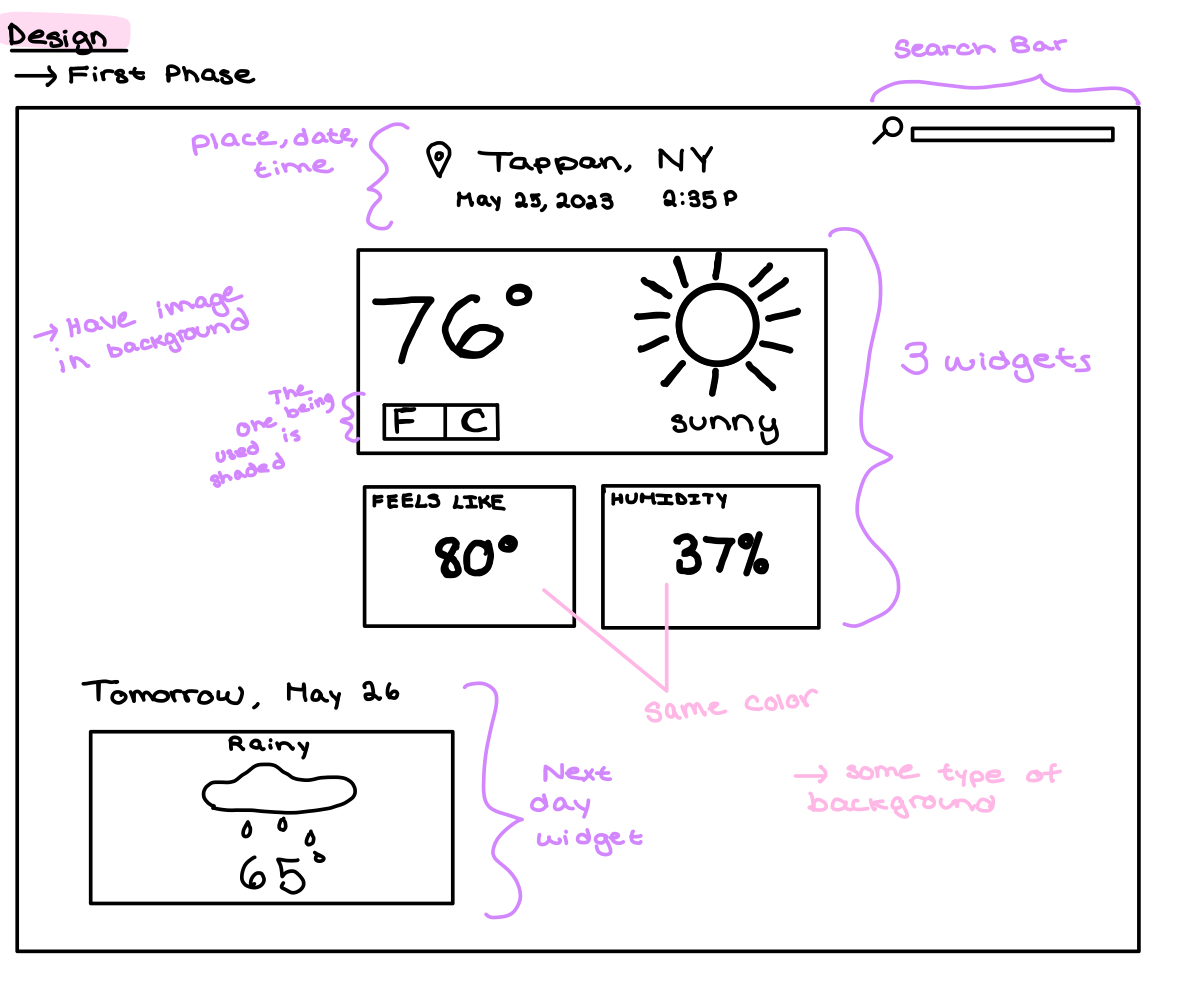 Design
→ First Phase
Search Bar
place, date,
time
Tappan, NY
May 25, 2023 2:35 P
→ Have image
in background
76°
The
one being
used is
shaded
F C
sunny
3 widgets
FEELS LIKE
80°
HUMIDITY
37%
same color
Tomorrow, May 26
Rainy
65°
Next
day
widget
→ some type of
background